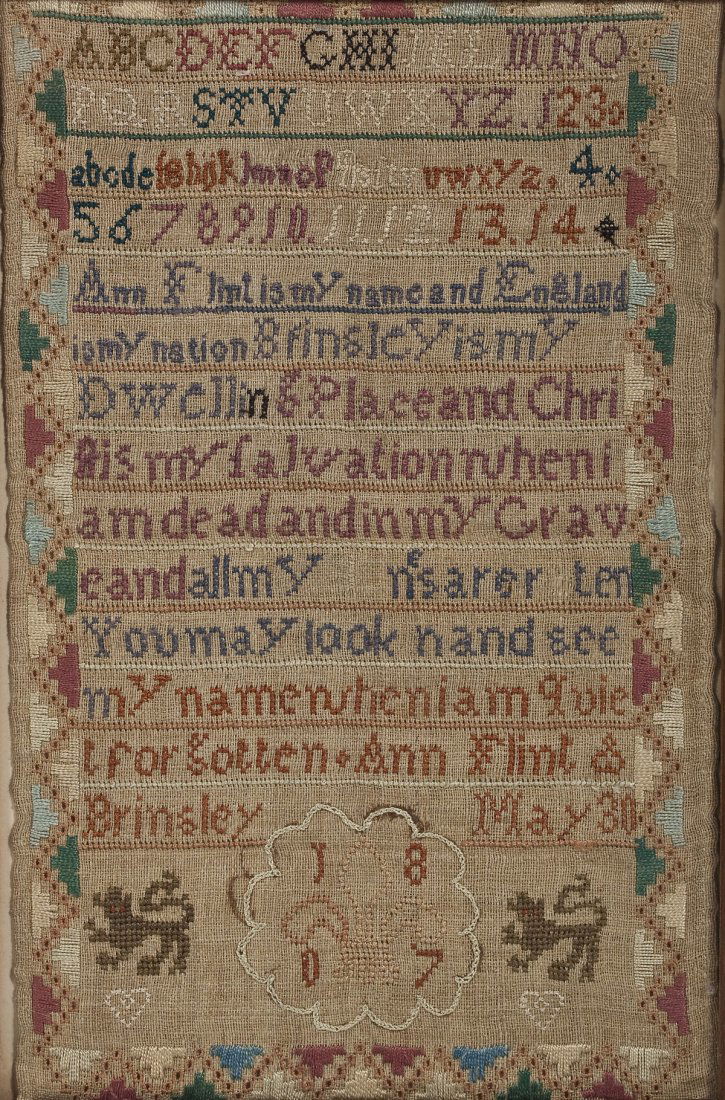 ABCDEFGHIJKLMNO
PQRSTVUWXYZ.123
abcdefghijklmnopqrstuvwxyz.4
56789.10.11.12.13.14
Ann Flint is my name and England
is my nation Brinsley is my
Dwelling Place and Chri
st is my salvation when i
am dead and in my Grav
e and all my are ten
You may look and see
my name when i am quie
t forgotten Ann Flint
Brinsley May 30
18
07